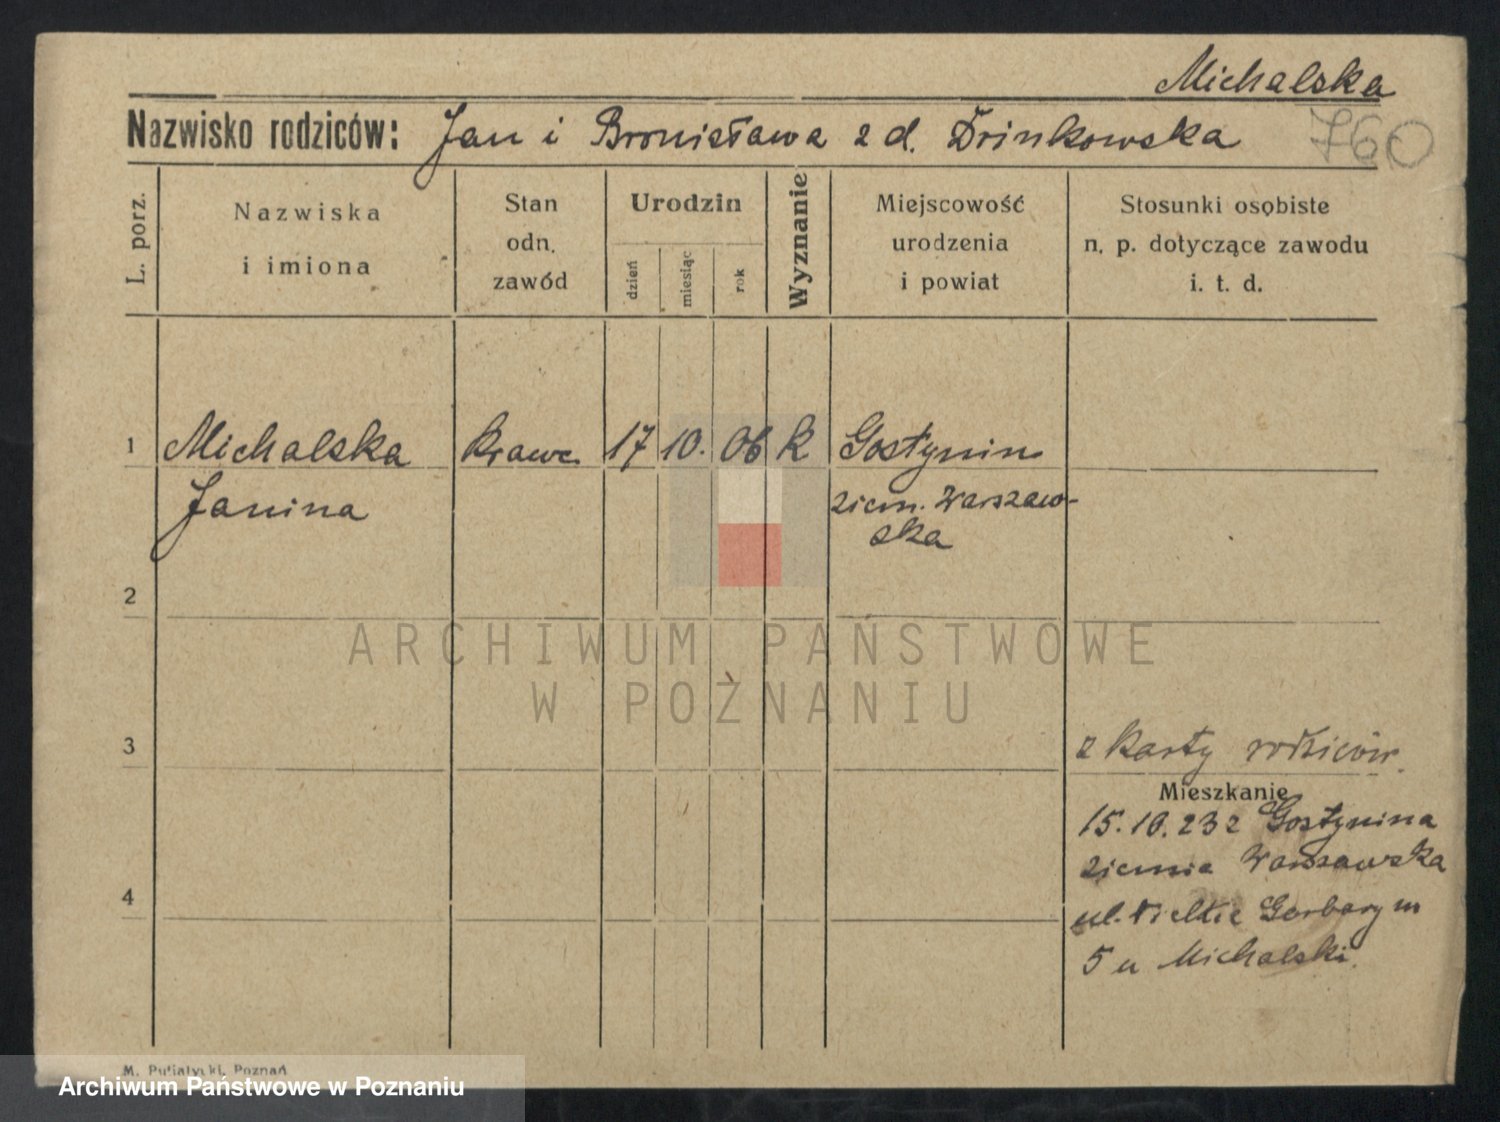 Michalska
Nazwisko rodziców: Jan i Bronisława z d. Drinkowska
760
L. porz.
Nazwiska
i imiona
Stan
odn.
zawód
Urodzin
dzień
miesiąc
rok
Wyznanie
Miejscowość
urodzenia
i powiat
Stosunki osobiste
n. p. dotyczące zawodu
i. t. d.
1 Michalska Krawc. 17 10. 06 K Gostynin
Janina ziem. Warszaw-
ska
2
ARCHIWUM PAŃSTWOWE
W POZNANIU
3 z karty rodziców.
Mieszkanie
15.10.232 Gostynina
ziemia Warszawska
4 ul. Wielkie Garbary m
5 u Michalski.
M. Putiatycki, Poznań
Archiwum Państwowe w Poznaniu